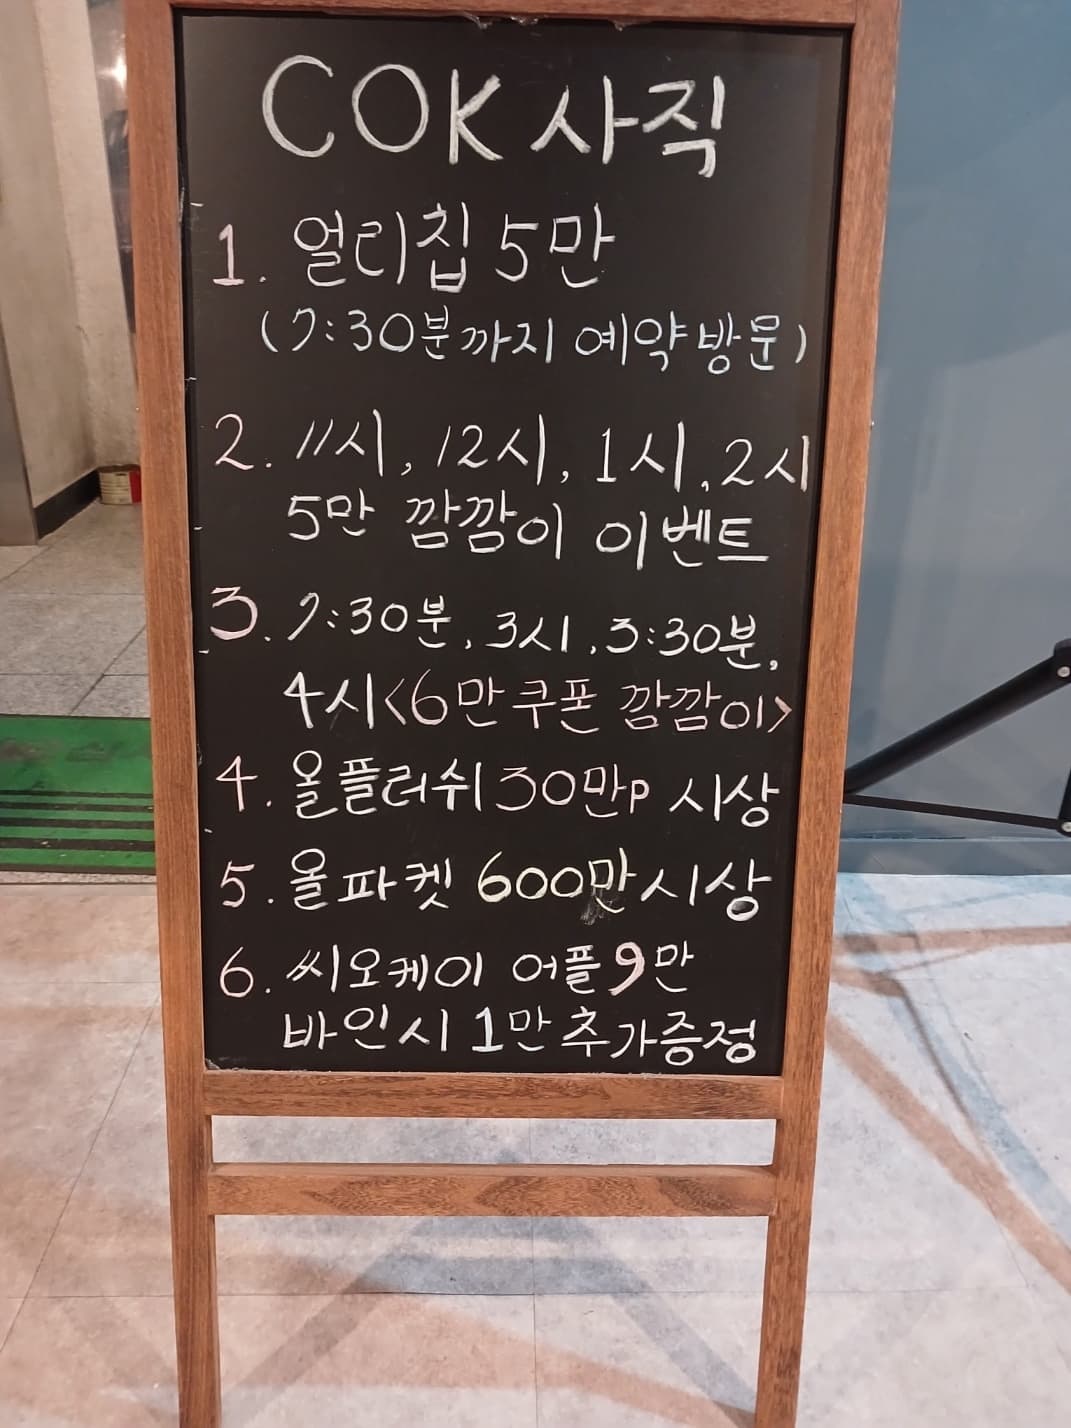 COK 사직
1. 얼리칩 5만
(7:30분까지 예약방문)
2. 11시, 12시, 1시, 2시
5만 깜깜이 이벤트
3. 7:30분, 3시, 3:30분,
4시<6만쿠폰 깜깜이>
4. 올플러쉬 30만P 시상
5. 올파켓 600만시상
6. 씨오케이 어플9만
바인시 1만추가증정